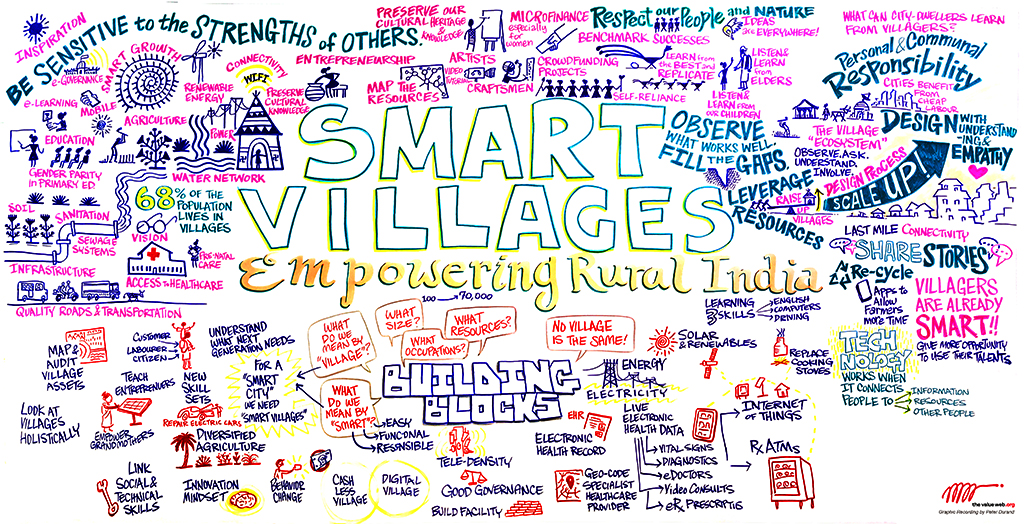 INSPIRATION
BE SENSITIVE to the STRENGTHS of OTHERS.
e-GOVERNANCE
SMART GROWTH
e-LEARNING
MOBILE
EDUCATION
AGRICULTURE
RENEWABLE
ENERGY
CONNECTIVITY
WIFI
POWER
PRESERVE
CULTURAL
KNOWLEDGE
ENTREPRENEURSHIP
PRESERVE OUR
CULTURAL HERITAGE
& KNOWLEDGE
ARTISTS
MAP THE
RESOURCES
VIDEO
TUTORIALS
CRAFTSMEN
MICROFINANCE
especially
for
women
CROWDFUNDING
PROJECTS
Respect our People and NATURE
BENCHMARK SUCCESSES
LEARN from
the BEST and
REPLICATE
SELF-RELIANCE
IDEAS
are EVERYWHERE!
LISTEN &
LEARN
from
ELDERS
LISTEN &
LEARN FROM
OUR CHILDREN
WHAT CAN CITY-DWELLERS LEARN
FROM VILLAGERS?
Personal & Communal
Responsibility
CITIES BENEFIT
FROM
CHEAP
LABOUR
GENDER PARITY
in PRIMARY ED.
WATER NETWORK
68% OF THE
POPULATION
LIVES IN
VILLAGES
SOIL
SANITATION
SEWAGE
SYSTEMS
VISION
PRE-NATAL
CARE
INFRASTRUCTURE
ACCESS to HEALTHCARE
QUALITY ROADS & TRANSPORTATION
SMART
VILLAGES
Empowering Rural India
OBSERVE
WHAT WORKS WELL.
FILL THE
GAPS.
LEVERAGE
RESOURCES
THE VILLAGE
"ECOSYSTEM"
OBSERVE. ASK.
UNDERSTAND.
INVOLVE.
DESIGN PROCESS
DESIGN WITH
UNDERSTAND
-ING &
EMPATHY
SCALE UP!
RAISE
UP
VILLAGES
LAST MILE CONNECTIVITY
SHARE STORIES
Re-cycle
Apps to
Allow
Farmers
more Time
VILLAGERS
ARE ALREADY
SMART!!
GIVE MORE OPPORTUNITY
TO USE THEIR TALENTS
TECH
NOLOGY
WORKS WHEN
IT CONNECTS
PEOPLE TO
INFORMATION
RESOURCES
OTHER PEOPLE
MAP &
AUDIT
VILLAGE
ASSETS
CUSTOMER
LABOURER
CITIZEN
UNDERSTAND
WHAT NEXT
GENERATION NEEDS
TEACH
ENTREPRENEURS
NEW
SKILL
SETS
FOR A
"SMART
CITY"
WE NEED
"SMART VILLAGES"
LOOK AT
VILLAGES
HOLISTICALLY
EMPOWER
GRANDMOTHERS
REPAIR ELECTRIC CARS
DIVERSIFIED
AGRICULTURE
LINK
SOCIAL &
TECHNICAL
SKILLS
INNOVATION
MINDSET
BEHAVIOR
CHANGE
CASH
LESS
VILLAGE
DIGITAL
VILLAGE
100 → 70,000
WHAT
DO WE
MEAN BY
"VILLAGE"?
WHAT
SIZE?
WHAT
OCCUPATIONS?
WHAT
RESOURCES?
NO VILLAGE
IS THE SAME!
WHAT
DO WE
MEAN BY
"SMART"?
EASY
FUNCIONAL
RESPNSIBLE
BUILDING
BLOCKS
TELE-DENSITY
GOOD GOVERNANCE
BUILD FACILITY
ENERGY
ELECTRICITY
EHR
ELECTRONIC
HEALTH RECORD
GEO-CODE
SPECIALIST
HEALTHCARE
PROVIDER
LIVE
ELECTRONIC
HEALTH DATA
VITAL SIGNS
DIAGNOSTICS
eDOCTORS
Video CONSULTS
eRx PRESCRIPTIS
LEARNING
3 SKILLS
ENGLISH
COMPUTERS
DRIVING
SOLAR
& RENEWABLES
REPLACE
COOKING
STOVES
INTERNET
OF THINGS
Rx ATMs
the value web.org
Graphic Recording by Peter Durand